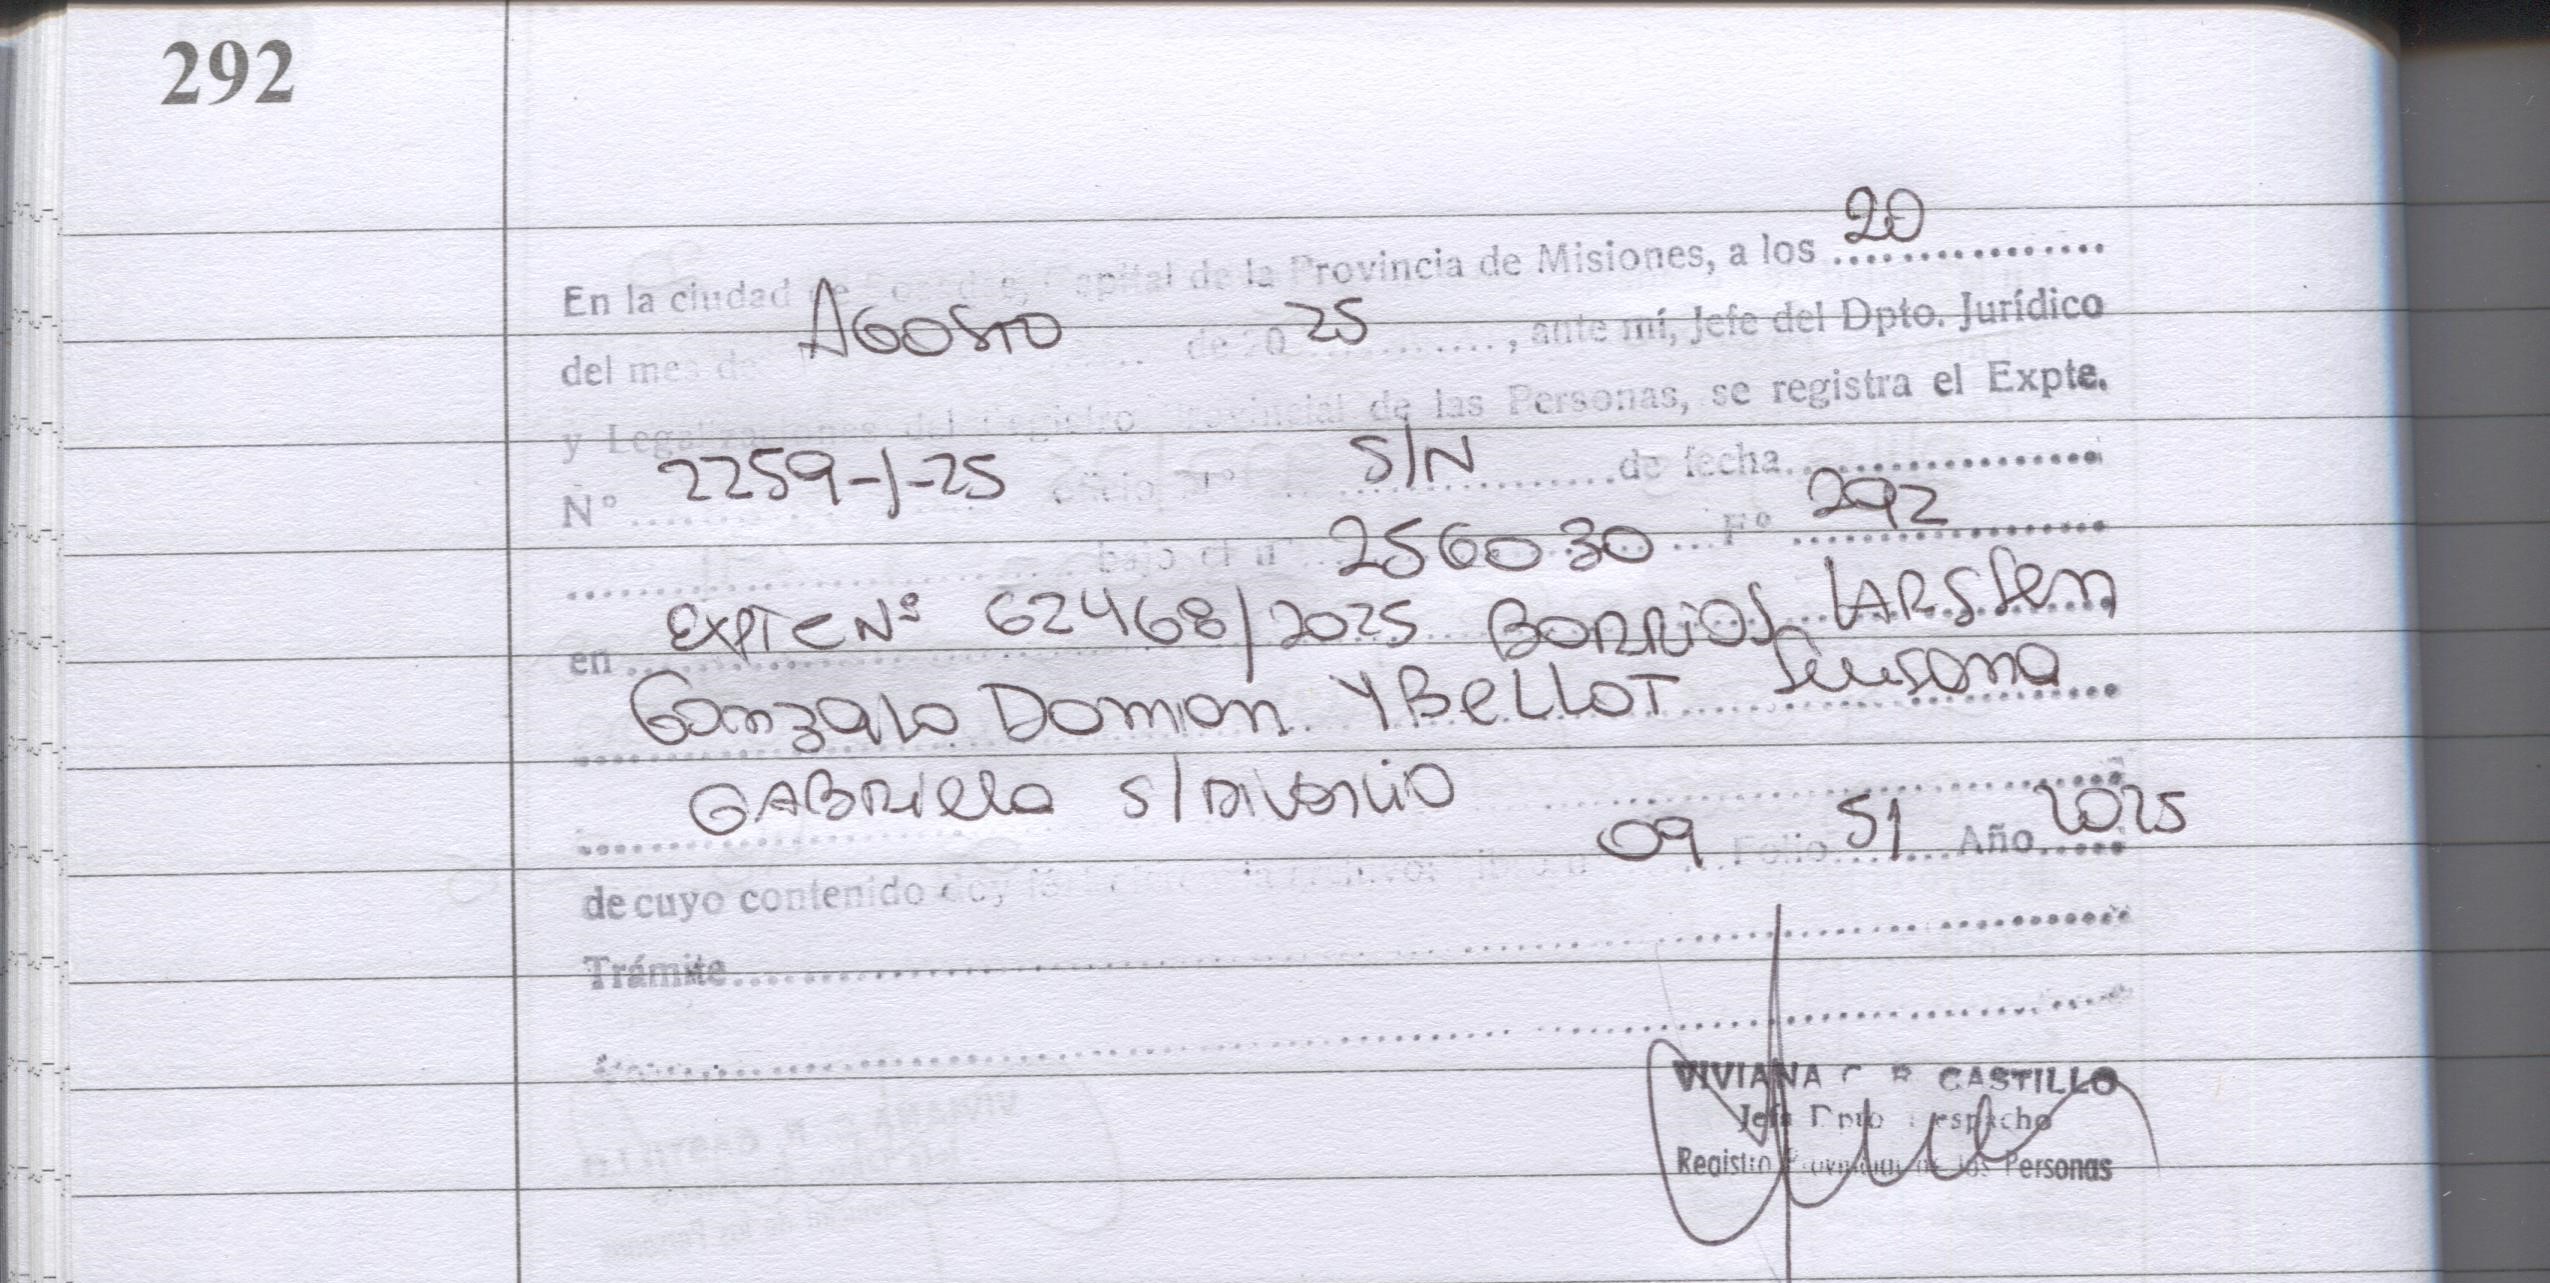 292
En la ciudad de Posadas, Capital de la Provincia de Misiones, a los 20
del mes de AGOSTO de 20 25, ante mí, Jefe del Dpto. Jurídico
y Legalizaciones del Registro Provincial de las Personas, se registra el Expte.
Nº 2259-J-25 Oficio Nº S/N de fecha
bajo el nº 256030 Fº 292
en EXPTE Nº 62468/2025 BORRIOS LARSSEN
GONZALO DOMIAN Y BELLOT SUSANA
GABRIELA S/DIVORCIO
de cuyo contenido doy fé 09 Folio 51 Año 2025
Trámite
VIVIANA C. R. CASTILLO
Jefa Dpto Despacho
Registro Provincial de las Personas